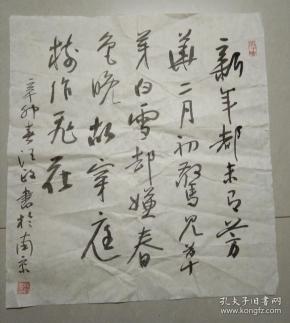 新年都未有芳
華二月初驚見草
芽白雪却嫌春
色晚故穿庭
樹作飛花
辛卯春汪政書於南京
孔夫子旧书网